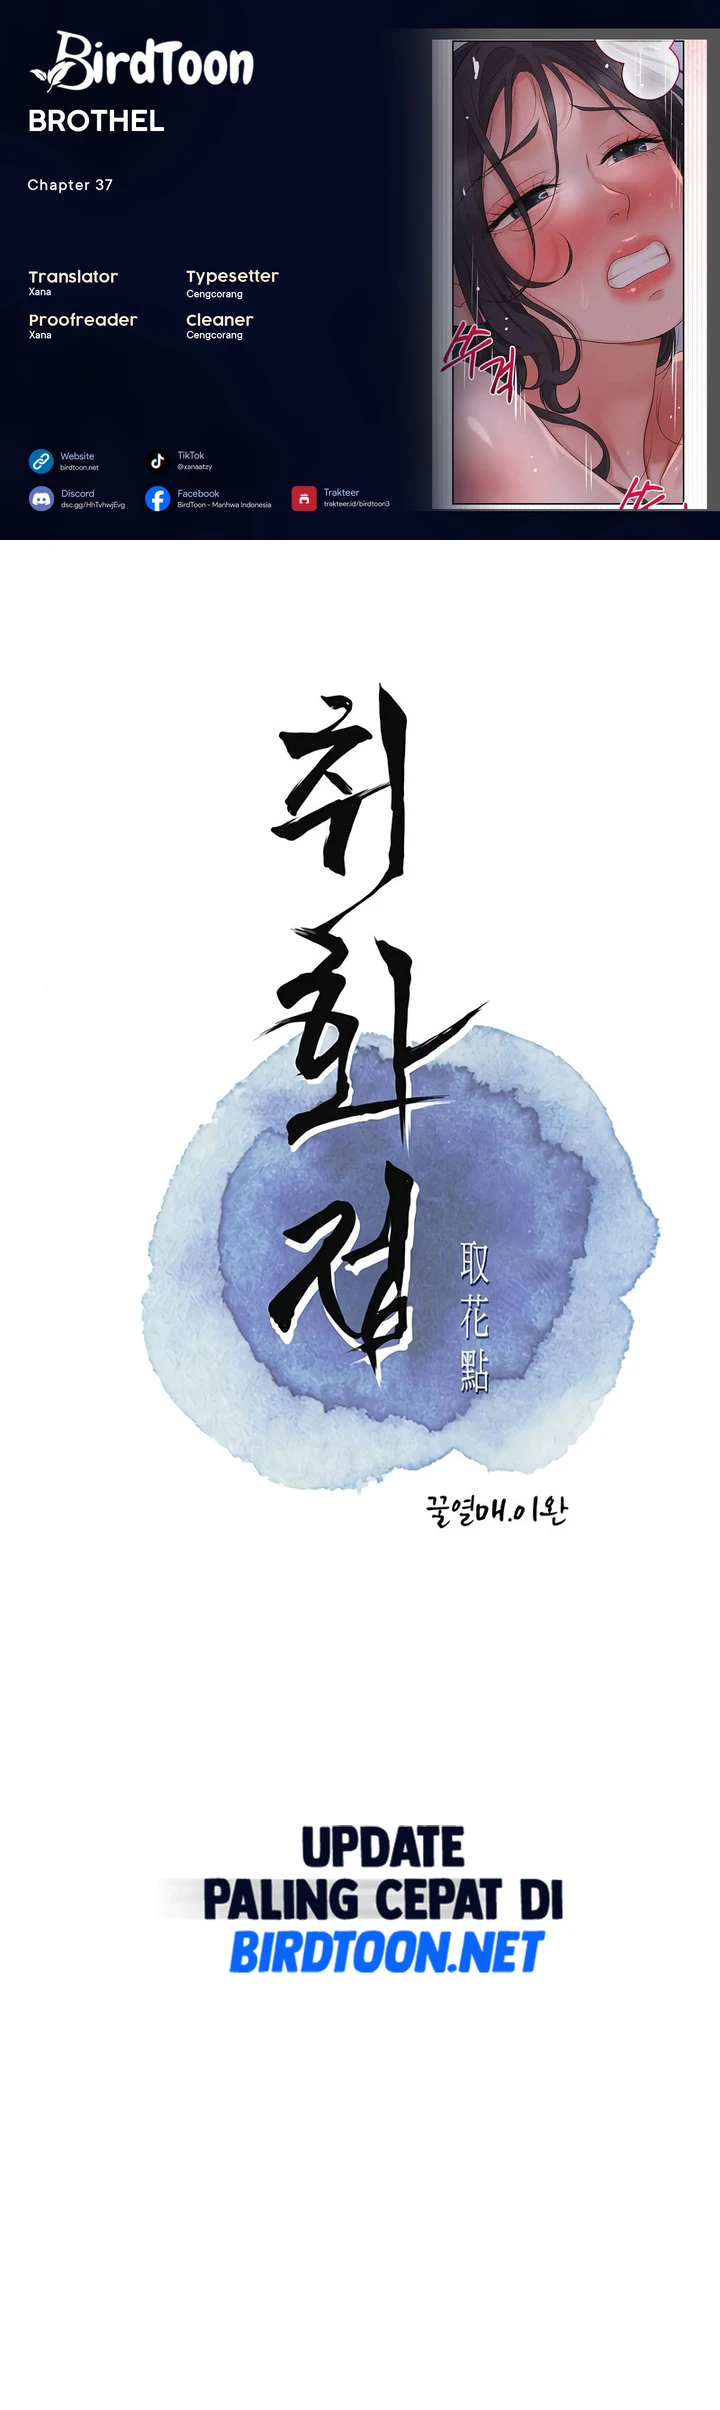 BirdToon
BROTHEL
Chapter 37
Translator
Xana
Typesetter
Cengcorang
Proofreader
Xana
Cleaner
Cengcorang
Website
birdtoon.net
TikTok
@xanaatzy
Discord
dsc.gg/HhTvhwjEvg
Facebook
BirdToon - Manhwa Indonesia
Trakteer
trakteer.id/birdtoon3
취화점
取花點
꿀열매.이완
UPDATE
PALING CEPAT DI
BIRDTOON.NET